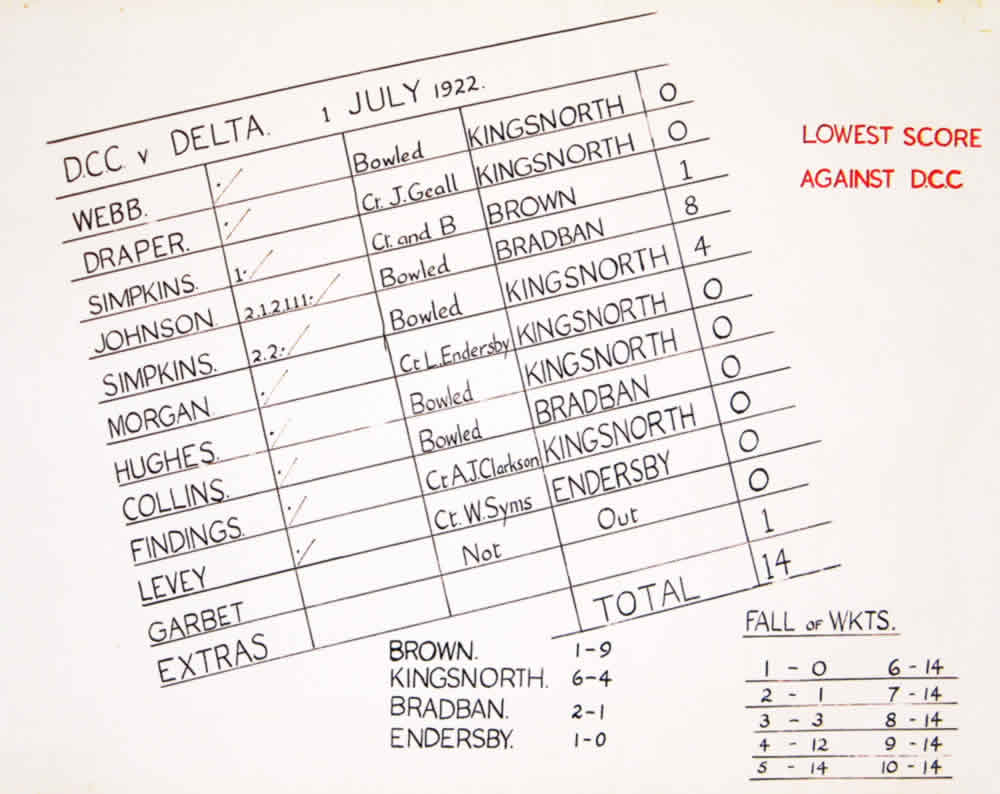 D.C.C v DELTA. 1 JULY 1922.
WEBB. ·/ Bowled KINGSNORTH 0
DRAPER. ·/ Ct. J.Geall KINGSNORTH 0
SIMPKINS. 1·/ Ct. and B BROWN 1
JOHNSON. 2.1.2.111·/ Bowled BRADBAN 8
SIMPKINS. 2.2·/ Bowled KINGSNORTH 4
MORGAN ·/ Ct L.Endersby KINGSNORTH 0
HUGHES. ·/ Bowled KINGSNORTH 0
COLLINS. ·/ Bowled BRADBAN 0
FINDINGS. ·/ Ct A.J.Clarkson KINGSNORTH 0
LEVEY ·/ Ct. W.Syms ENDERSBY 0
GARBET Not Out 0
EXTRAS 1
TOTAL 14
LOWEST SCORE
AGAINST D.C.C
BROWN. 1-9
KINGSNORTH. 6-4
BRADBAN. 2-1
ENDERSBY. 1-0
FALL OF WKTS.
1 - 0 6 - 14
2 - 1 7 - 14
3 - 3 8 - 14
4 - 12 9 - 14
5 - 14 10 - 14